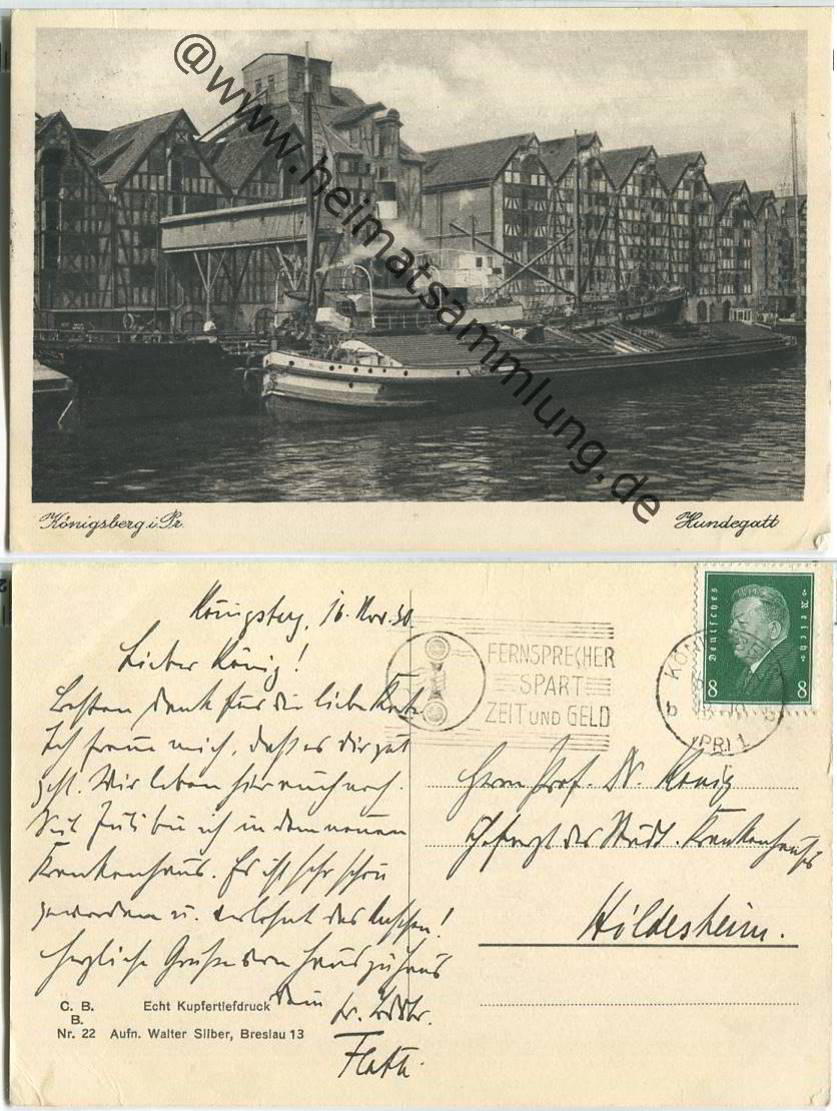 @www.heimatsammlung.de
Königsberg i. Pr.
Hundegatt
Königsberg, 16. Nov. 30.
Lieber König!
Besten Dank für die liebe Karte.
Ich freue mich, daß es dir gut
geht. Wir leben hier auch noch.
Seit Juli bin ich in dem neuen
Krankenhaus. Es ist sehr schön
geworden u. verlohnt das Ansehen!
Herzliche Grüße von Haus zu Haus
Dein
FERNSPRECHER
SPART
ZEIT UND GELD
Deutsches Reich
8 8
KÖNIGSBERG
(PR) 1
b
Herrn Prof. Dr. König
Chefarzt des Städt. Krankenhauses
Hildesheim.
C. B. B. Echt Kupfertiefdruck
Nr. 22 Aufn. Walter Silber, Breslau 13